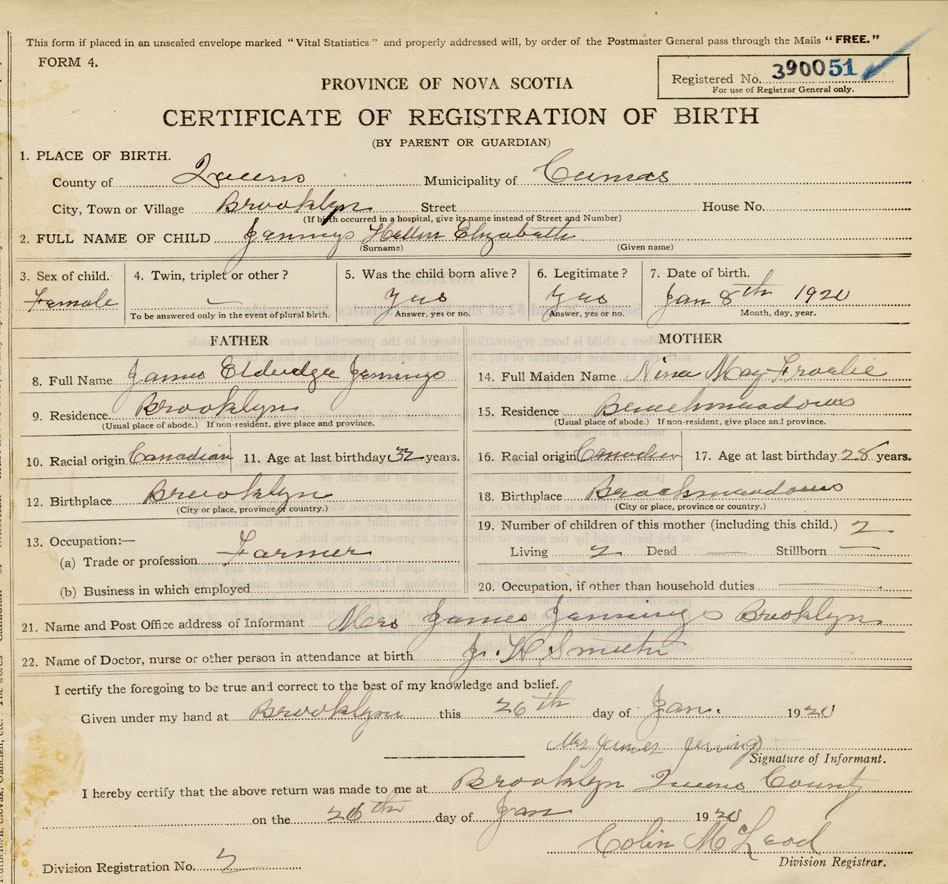 This form if placed in an unsealed envelope marked "Vital Statistics" and properly addressed will, by order of the Postmaster General pass through the Mails "FREE."
FORM 4.
Registered No. 390051
For use of Registrar General only.
PROVINCE OF NOVA SCOTIA
CERTIFICATE OF REGISTRATION OF BIRTH
(BY PARENT OR GUARDIAN)
1. PLACE OF BIRTH.
County of Queens Municipality of
City, Town or Village Brooklyn Street House No.
(If birth occurred in a hospital, give its name instead of Street and Number)
2. FULL NAME OF CHILD Jennings Elizabeth
(Surname) (Given name)
3. Sex of child. 4. Twin, triplet or other? 5. Was the child born alive? 6. Legitimate? 7. Date of birth.
Female — Yes Yes Jan 8th 1920
To be answered only in the event of plural birth. Answer, yes or no. Answer, yes or no. Month, day, year.
FATHER MOTHER
8. Full Name James Eldridge Jennings 14. Full Maiden Name Nina May
9. Residence. Brooklyn 15. Residence Beachmeadows
(Usual place of abode.) If non-resident, give place and province. (Usual place of abode.) If non-resident, give place and province.
10. Racial origin Canadian 11. Age at last birthday 32 years. 16. Racial origin Canadian 17. Age at last birthday 28 years.
12. Birthplace Brooklyn 18. Birthplace Beachmeadows
(City or place, province or country.) (City or place, province or country.)
13. Occupation:— 19. Number of children of this mother (including this child.) 2
(a) Trade or profession Farmer Living 2 Dead — Stillborn —
(b) Business in which employed 20. Occupation, if other than household duties
21. Name and Post Office address of Informant Mrs James Jennings Brooklyn
22. Name of Doctor, nurse or other person in attendance at birth Smith
I certify the foregoing to be true and correct to the best of my knowledge and belief.
Given under my hand at Brooklyn this 26th day of Jan. 1920
Mrs James Jennings
Signature of Informant.
I hereby certify that the above return was made to me at Brooklyn Queens County
on the 26th day of Jan 1920
Colin McLeod
Division Registration No. 2 Division Registrar.